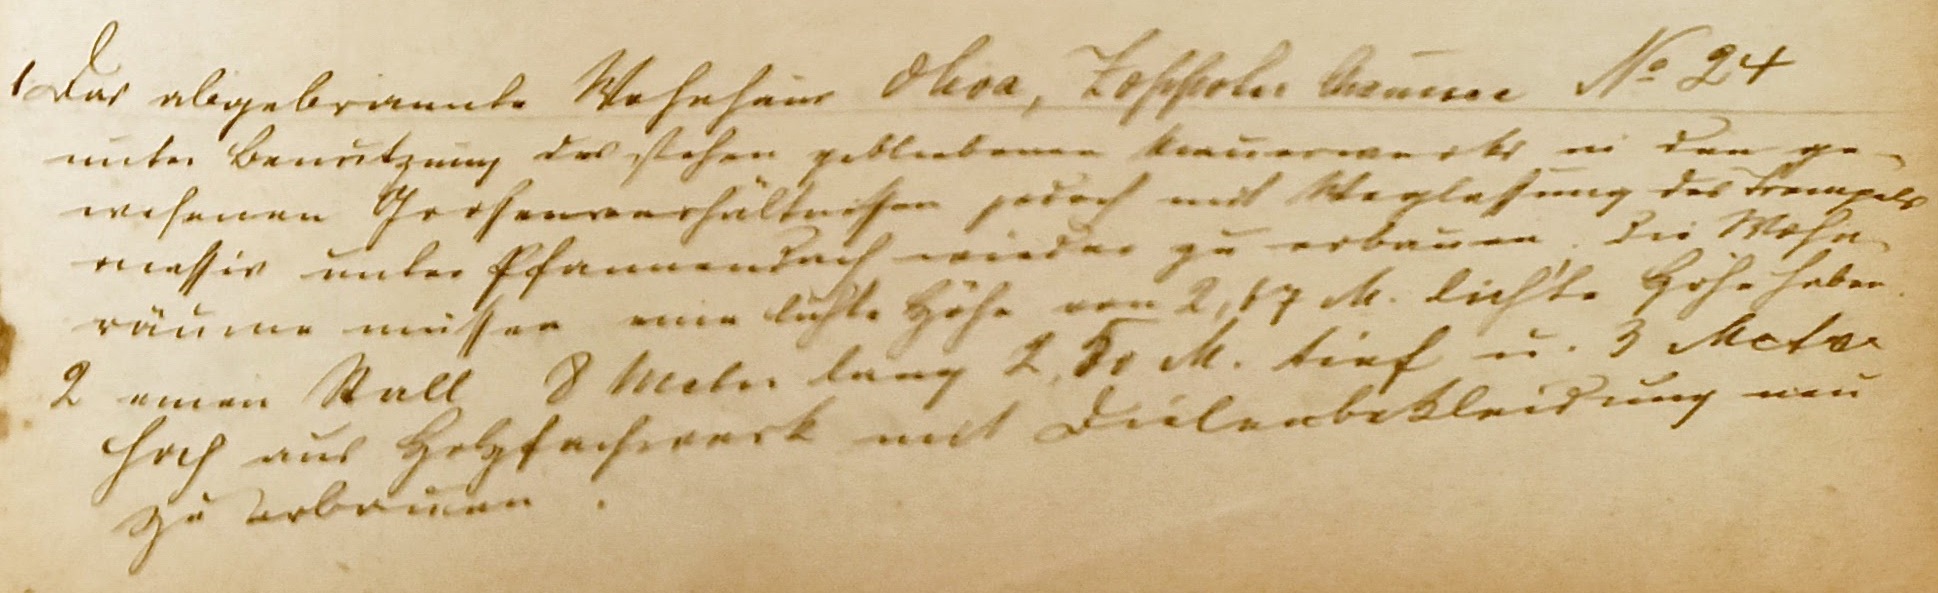 1 Das abgebrannte Wohnhaus Oliva, Zoppoter Chaussee No 24
unter Benutzung des stehen gebliebenen Mauerwerks in den ge-
wesenen Grössenverhältnissen jedoch mit Weglassung des Drempels
massiv unter Pfannendach wieder zu erbauen. Die Wohn-
räume müssen eine lichte Höhe von 2,67 M. lichte Höhe haben.
2 einen Stall 8 Meter lang 2,50 M. tief u. 3 Meter
hoch aus Holzfachwerk mit Dielenbekleidung neu
zu erbauen.